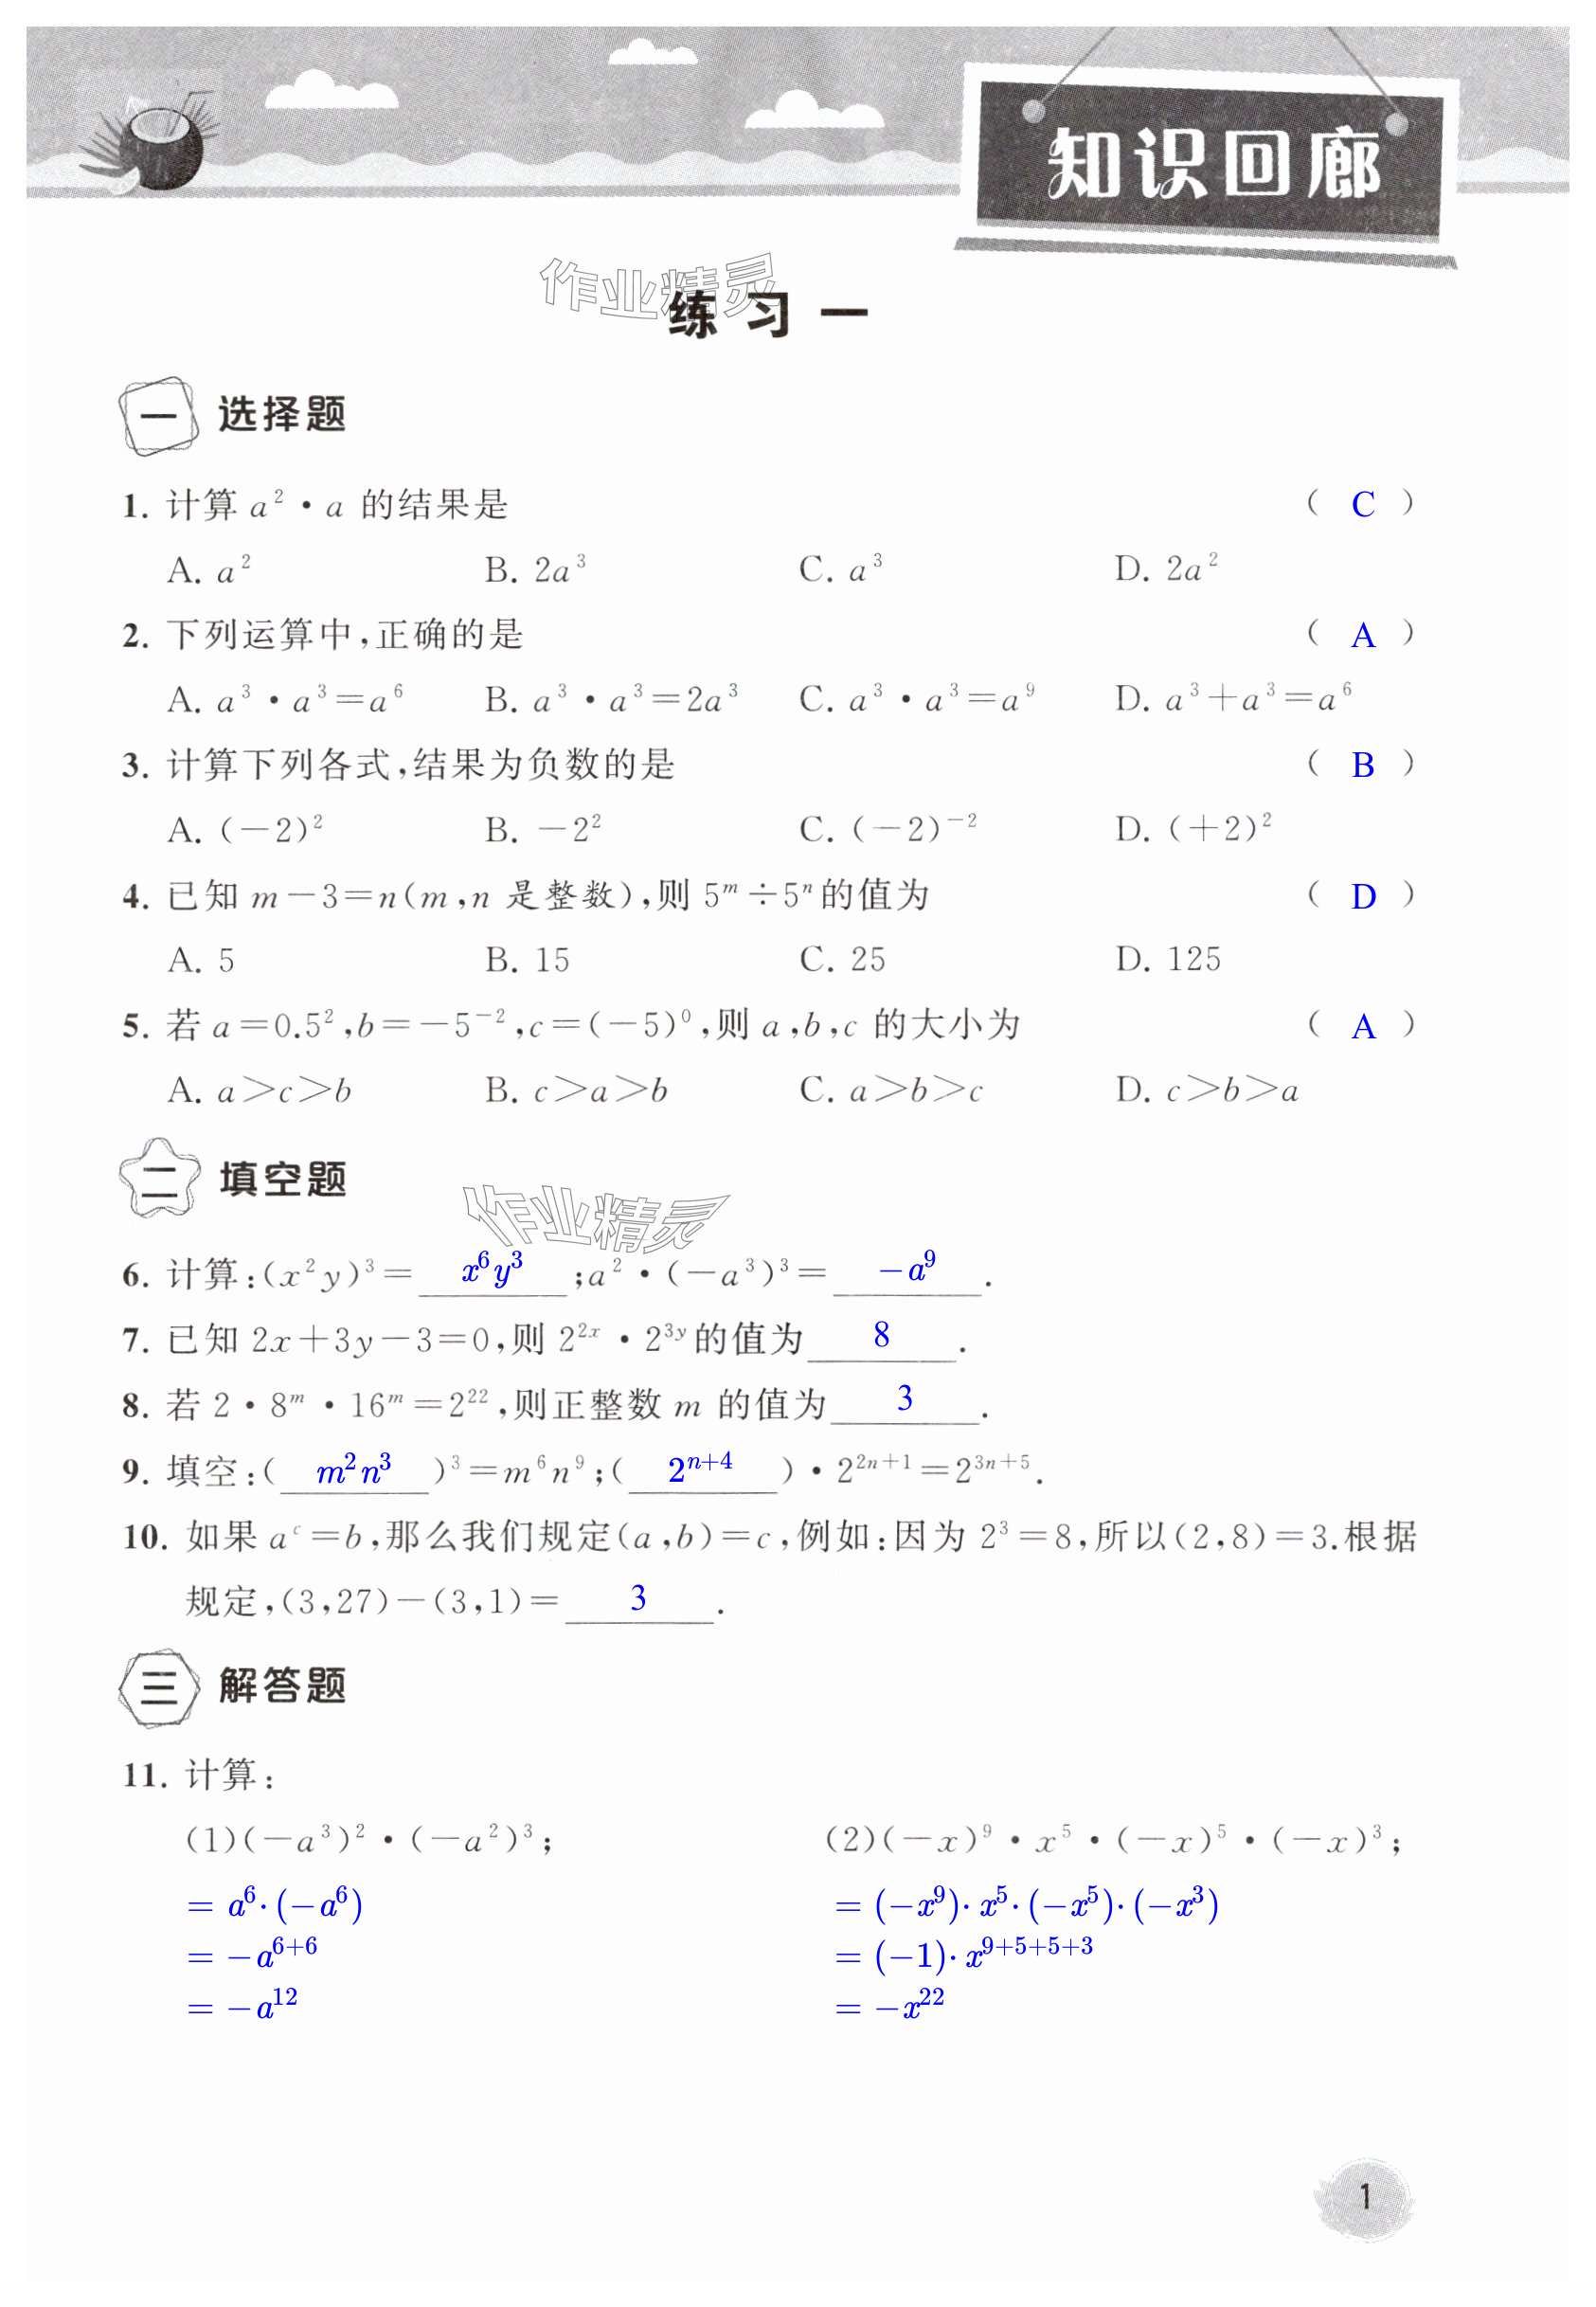 知识回廊
作业精灵
练习一
一 选择题
1. 计算 a²·a 的结果是 ( C )
A. a² B. 2a³ C. a³ D. 2a²
2. 下列运算中,正确的是 ( A )
A. a³·a³=a⁶ B. a³·a³=2a³ C. a³·a³=a⁹ D. a³+a³=a⁶
3. 计算下列各式,结果为负数的是 ( B )
A. (-2)² B. -2² C. (-2)⁻² D. (+2)²
4. 已知 m-3=n(m,n 是整数),则 5ᵐ÷5ⁿ的值为 ( D )
A. 5 B. 15 C. 25 D. 125
5. 若 a=0.5²,b=-5⁻²,c=(-5)⁰,则 a,b,c 的大小为 ( A )
A. a>c>b B. c>a>b C. a>b>c D. c>b>a
二 填空题
作业精灵
6. 计算:(x²y)³= x⁶y³ ;a²·(-a³)³= -a⁹ .
7. 已知 2x+3y-3=0,则 2^{2x}·2^{3y}的值为 8 .
8. 若 2·8ᵐ·16ᵐ=2²²,则正整数 m 的值为 3 .
9. 填空:( m²n³ )³=m⁶n⁹;( 2ⁿ⁺⁴ )·2²ⁿ⁺¹=2³ⁿ⁺⁵.
10. 如果 aᶜ=b,那么我们规定(a,b)=c,例如:因为 2³=8,所以(2,8)=3.根据
规定,(3,27)-(3,1)= 3 .
三 解答题
11. 计算:
(1)(-a³)²·(-a²)³; (2)(-x)⁹·x⁵·(-x)⁵·(-x)³;
= a⁶·(-a⁶) = (-x⁹)·x⁵·(-x⁵)·(-x³)
= -a⁶⁺⁶ = (-1)·x⁹⁺⁵⁺⁵⁺³
= -a¹² = -x²²
1